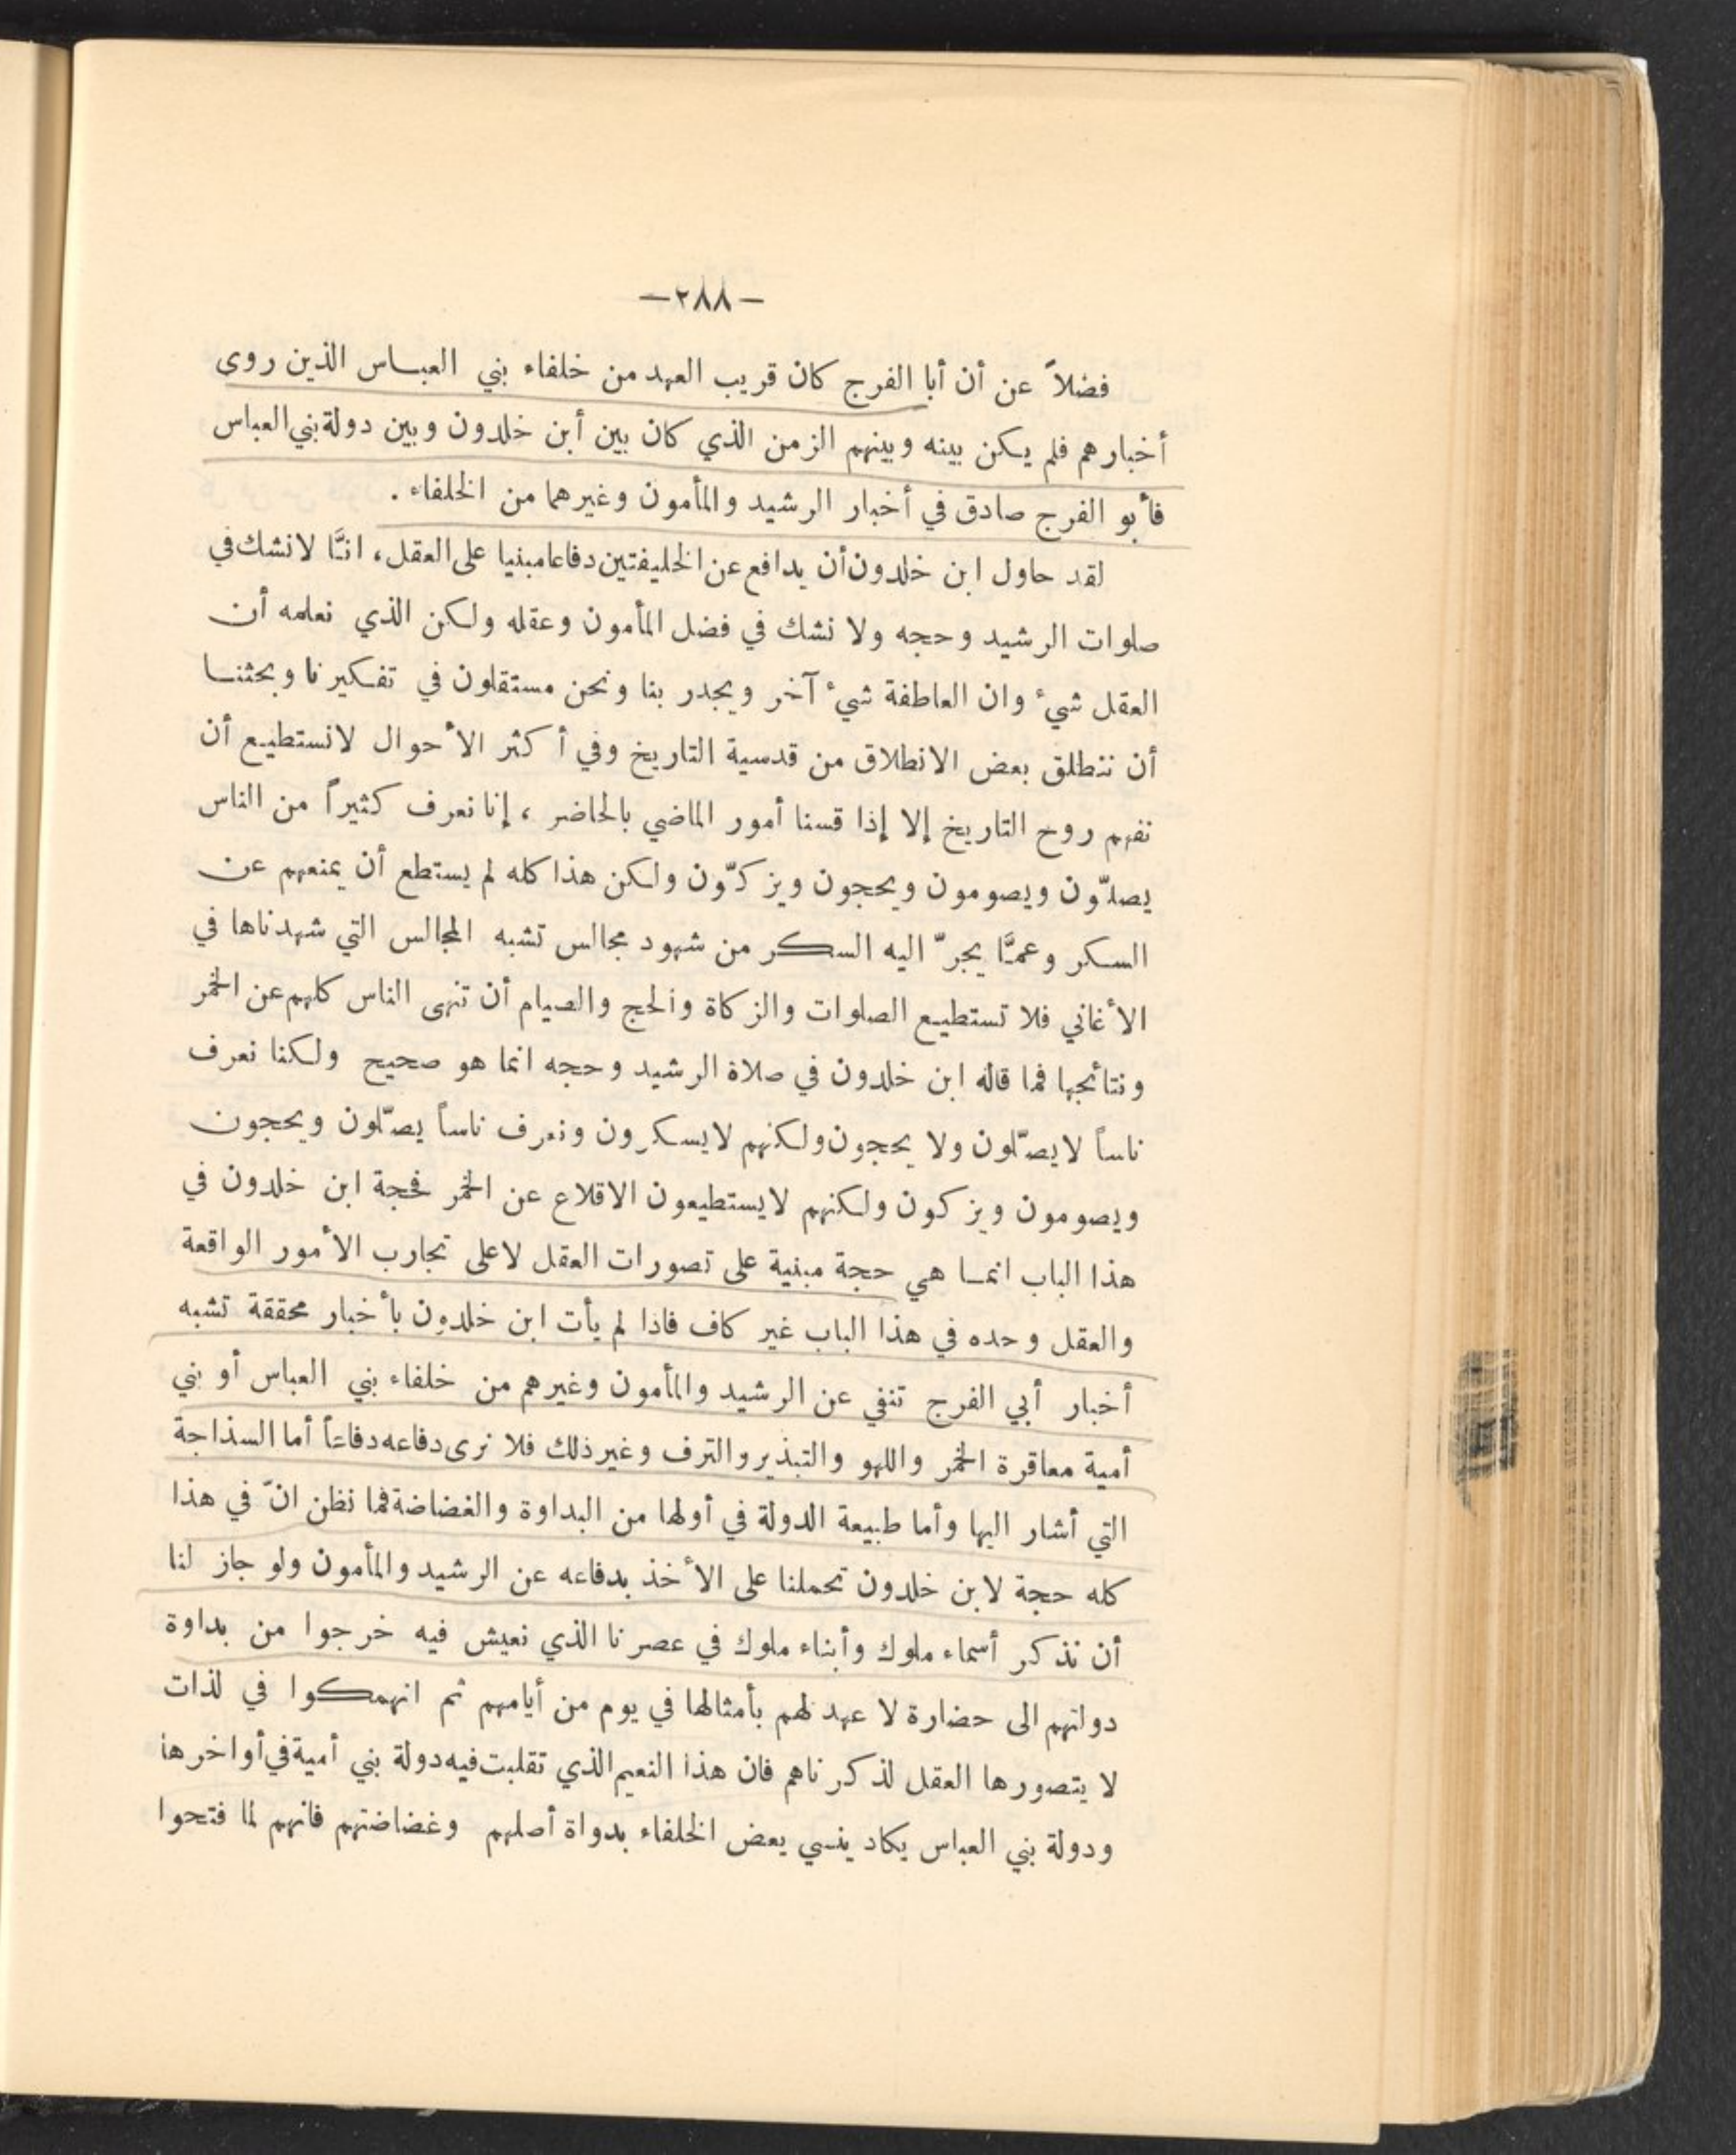 —٢٨٨—
فضلاً عن أن أبا الفرج كان قريب العهد من خلفاء بني العباس الذين روى
أخبارهم فلم يكن بينه وبينهم الزمن الذي كان بين أبن خلدون وبين دولة بني العباس
فأبو الفرج صادق في أخبار الرشيد والمأمون وغيرهما من الخلفاء .
لقد حاول ابن خلدون أن يدافع عن الخليفتين دفاعا مبنيا على العقل، انَّا لا نشك في
صلوات الرشيد وحجه ولا نشك في فضل المأمون وعقله ولكن الذي نعلمه أن
العقل شيء وان العاطفة شيء آخر ويجدر بنا ونحن مستقلون في تفكيرنا وبحثنا
أن ننطلق بعض الانطلاق من قدسية التاريخ وفي أكثر الأحوال لانستطيع أن
نفهم روح التاريخ إلا إذا قسنا أمور الماضي بالحاضر ، إنا نعرف كثيراً من الناس
يصلّون ويصومون ويحجون ويزكّون ولكن هذا كله لم يستطع أن يمنعهم عن
السكر وعمَّا يجرّ اليه السكر من شهود مجالس تشبه المجالس التي شهدناها في
الأغاني فلا تستطيع الصلوات والزكاة والحج والصيام أن تنهى الناس كلهم عن الخمر
ونتائجها فما قاله ابن خلدون في صلاة الرشيد وحجه انما هو صحيح ولكنا نعرف
ناساً لايصلّون ولا يحجون ولكنهم لايسكرون ونعرف ناساً يصلّون ويحجون
ويصومون ويزكون ولكنهم لايستطيعون الاقلاع عن الخمر فحجة ابن خلدون في
هذا الباب انما هي حجة مبنية على تصورات العقل لاعلى تجارب الأمور الواقعة
والعقل وحده في هذا الباب غير كاف فاذا لم يأت ابن خلدون بأخبار محققة تشبه
أخبار أبي الفرج تنفي عن الرشيد والمأمون وغيرهم من خلفاء بني العباس أو بني
أمية معاقرة الخمر واللهو والتبذير والترف وغير ذلك فلا نرى دفاعه دفاعاً أما السذاجة
التي أشار اليها وأما طبيعة الدولة في أولها من البداوة والغضاضة فما نظن انّ في هذا
كله حجة لابن خلدون تحملنا على الأخذ بدفاعه عن الرشيد والمأمون ولو جاز لنا
أن نذكر أسماء ملوك وأبناء ملوك في عصرنا الذي نعيش فيه خرجوا من بداوة
دولتهم الى حضارة لا عهد لهم بأمثالها في يوم من أيامهم ثم انهمكوا في لذات
لا يتصورها العقل لذكرناهم فان هذا النعيم الذي تقلبت فيه دولة بني أمية في أواخرها
ودولة بني العباس يكاد ينسي بعض الخلفاء بدواة أصلهم وغضاضتهم فانهم لما فتحوا